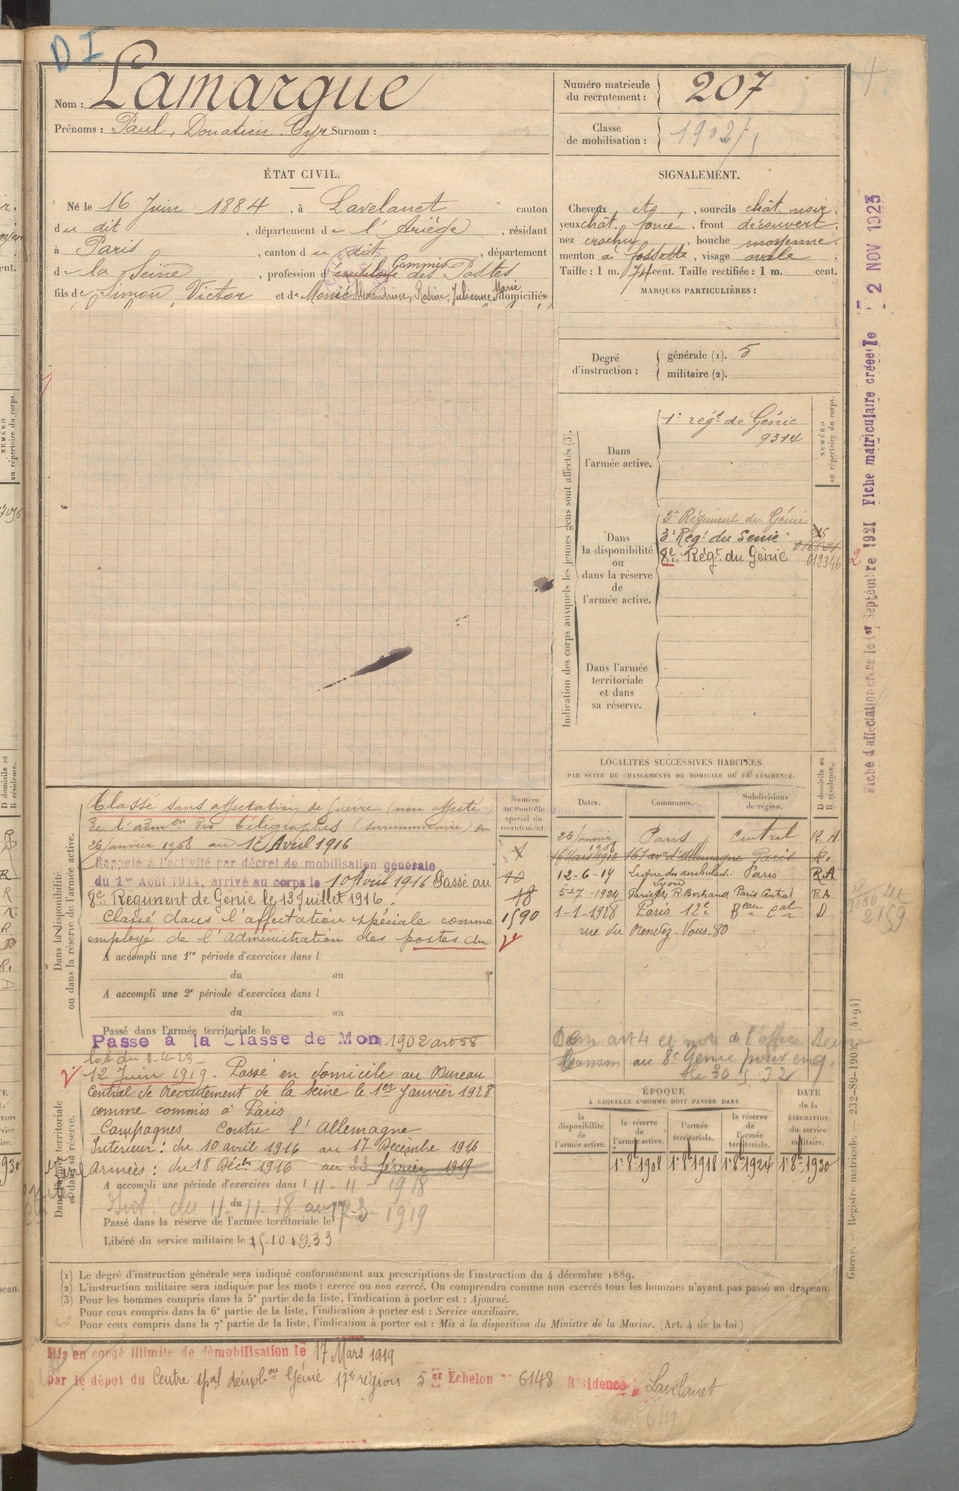 DI
Nom : Lamargue
Prénoms : Paul, Donatien Cyr Surnom :
Numéro matricule du recrutement : 207
Classe de mobilisation : 1902/1
ÉTAT CIVIL.
Né le 16 Juin 1884, à Lavelanet canton
du dit, département de l'Ariège, résidant
à Paris, canton du dit, département
de la Seine, profession d'employé Commis des Postes
fils de Simon, Victor et de Marie domiciliés
SIGNALEMENT.
Cheveux et, sourcils chât. noir.
yeux chât. foncé, front découvert.
nez crochu, bouche moyenne
menton à fossette, visage ovale.
Taille : 1 m. 74 cent. Taille rectifiée : 1 m. cent.
MARQUES PARTICULIÈRES :
Degré d'instruction :
générale (1). 5
militaire (2).
Indication des corps auxquels les jeunes gens sont affectés (3).
NUMÉRO au répertoire du corps.
Dans l'armée active.
1er regt de Génie
9314
Dans la disponibilité ou dans la réserve de l'armée active.
2e Régiment du Génie
3e Regt du Genie
8e Regt du Génie 012346
Dans l'armée territoriale et dans sa réserve.
Fiche d'affectation créée le 1er septembre 1921 Fiche matriculaire créée le - 2 NOV 1923
LOCALITÉS SUCCESSIVES HABITÉES
PAR SUITE DE CHANGEMENTS DE DOMICILE OU DE RÉSIDENCE.
Numéro au contrôle spécial du recrutement.
Dates. Communes. Subdivisions de région. D domicile ou R résidence.
26 janvier 1908 Paris Central R.A
16 av d'Allemagne Paris R.
12-6-14 Ligne des ambulants Lyon Paris R.A
5-7-1924 R. Bertrand Paris Central R.A
1-1-1928 Paris 12e Beau Cal D
rue du Rendez-Vous-80
1590
Dans la disponibilité ou dans la réserve de l'armée active.
Classé sans affectation de Guerre (non affecté)
de l'admon des télégraphes (surnuméraire) du
26 janvier 1908 au 12 Avril 1916
Rappelé à l'activité par décret de mobilisation générale
du 1er Août 1914, arrivé au corps le 10 Avril 1916 Passé au
8e Régiment de Génie le 13 Juillet 1916.
Classé dans l'affectation spéciale comme
employé de l'administration des postes du
A accompli une 1re période d'exercices dans l
du au
A accompli une 2e période d'exercices dans l
du au
Passé dans l'armée territoriale le
Passe à la Classe de Mon 1902 art 58
loi du 1-4-23
Dans l'armée territoriale et dans sa réserve.
12 Juin 1919. Passé en domicile au Bureau
Central de Recrutement de la Seine le 1er Janvier 1928
comme commis à Paris
Campagnes Contre l'Allemagne
Intérieur : du 10 avril 1916 au 17 Décembre 1916
Armées : du 18 Décbre 1916 au 23 février 1919
A accompli une période d'exercices dans l 11-11-1918
Int. du 11-11-18 au 17-3-1919
Passé dans la réserve de l'armée territoriale le
Libéré du service militaire le 15 10 1933
art 4 et non de l'affec
au 8e Génie
le 30.5.32
ÉPOQUE
À LAQUELLE L'HOMME DOIT PASSER DANS
DATE de la LIBÉRATION DU SERVICE militaire.
la disponibilité de l'armée active. la réserve de l'armée active. l'armée territoriale. la réserve de l'armée territoriale.
1er 8bre 1908 1er 8bre 1918 1er 8bre 1924 1er 8bre 1930
Guerre. — Registre matricule. — 232-89-1905. [494]
(1) Le degré d'instruction générale sera indiqué conformément aux prescriptions de l'instruction du 4 décembre 1889.
(2) L'instruction militaire sera indiquée par les mots : exercé ou non exercé. On comprendra comme non exercés tous les hommes n'ayant pas passé au drapeau.
(3) Pour les hommes compris dans la 5e partie de la liste, l'indication à porter est : Ajourné.
Pour ceux compris dans la 6e partie de la liste, l'indication à porter est : Service auxiliaire.
Pour ceux compris dans la 7e partie de la liste, l'indication à porter est : Mis à la disposition du Ministre de la Marine. (Art. 4 de la loi.)
Mis en congé illimité de démobilisation le 17 Mars 1919
par le dépôt du Centre spal démobon Génie 17e région 5er Echelon n° 6148 Résidence à Lavelanet